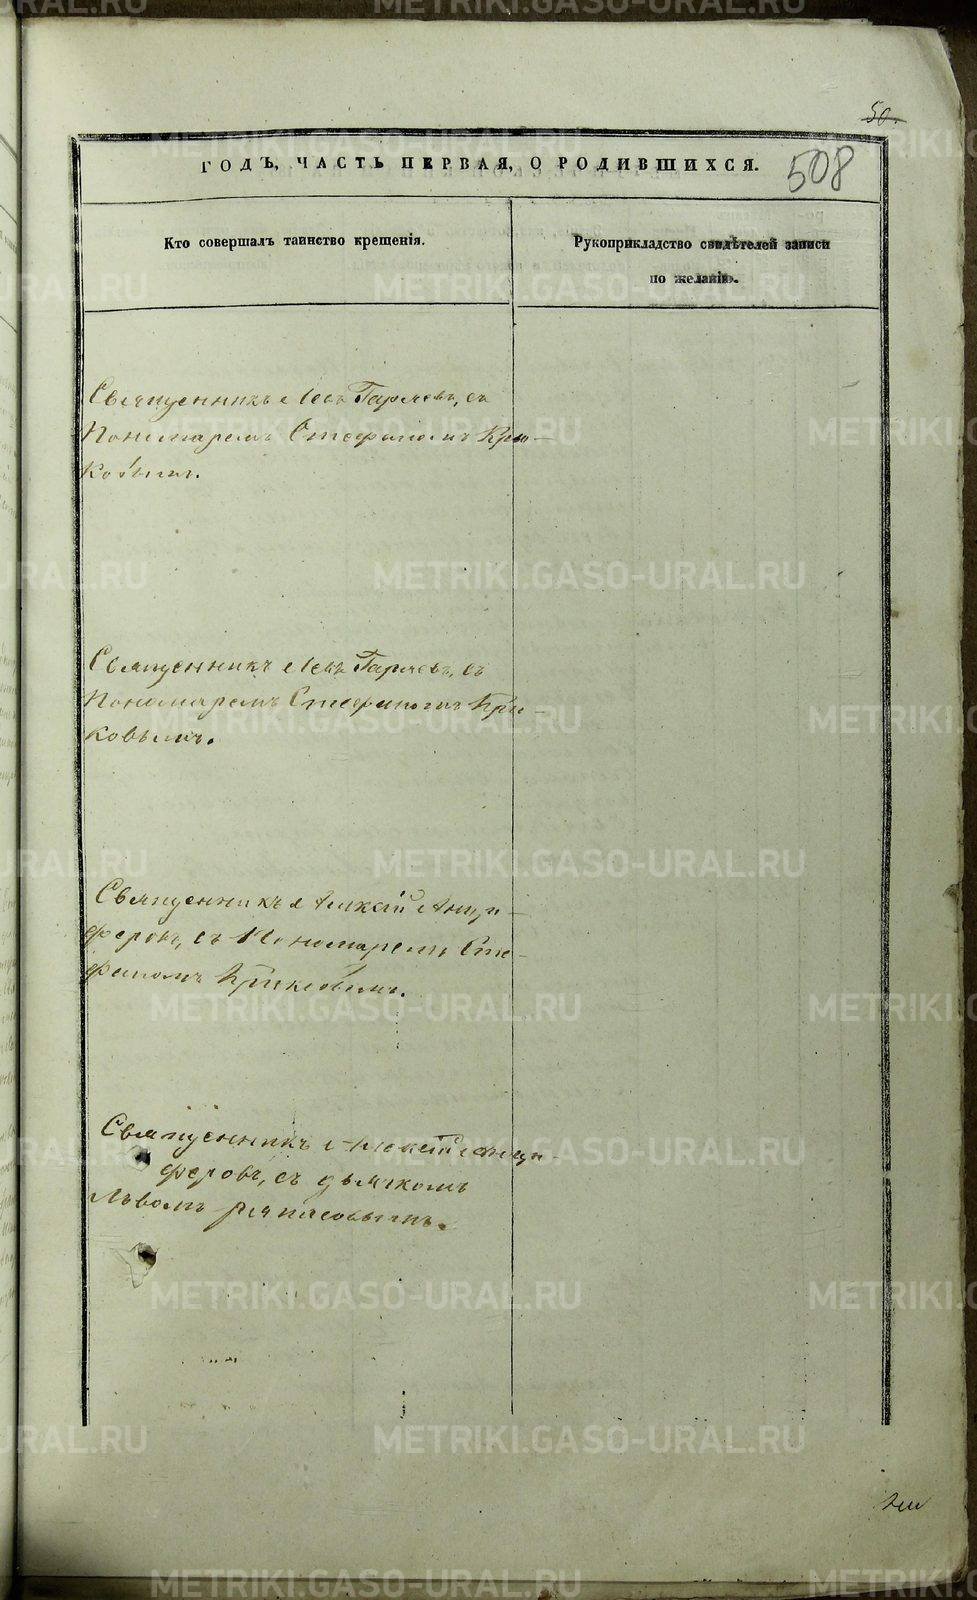 50.
ГОДЪ, ЧАСТЬ ПЕРВАЯ, О РОДИВШИХСЯ.
508
Кто совершалъ таинство крещенія.
Рукоприкладство свидѣтелей записи
по желанію.
Священникъ Левъ Гаряевъ, съ
Пономаремъ Стефаномъ Крю-
ковымъ.
Священникъ Левъ Гаряевъ, съ
Пономаремъ Стефаномъ Крю-
ковымъ.
Священникъ Алексій Анци-
феровъ, съ Пономаремъ Сте-
фаномъ Крюковымъ.
Священникъ Алексій Анци-
феровъ, съ дьячкомъ
Львомъ
METRIKI.GASO-URAL.RU